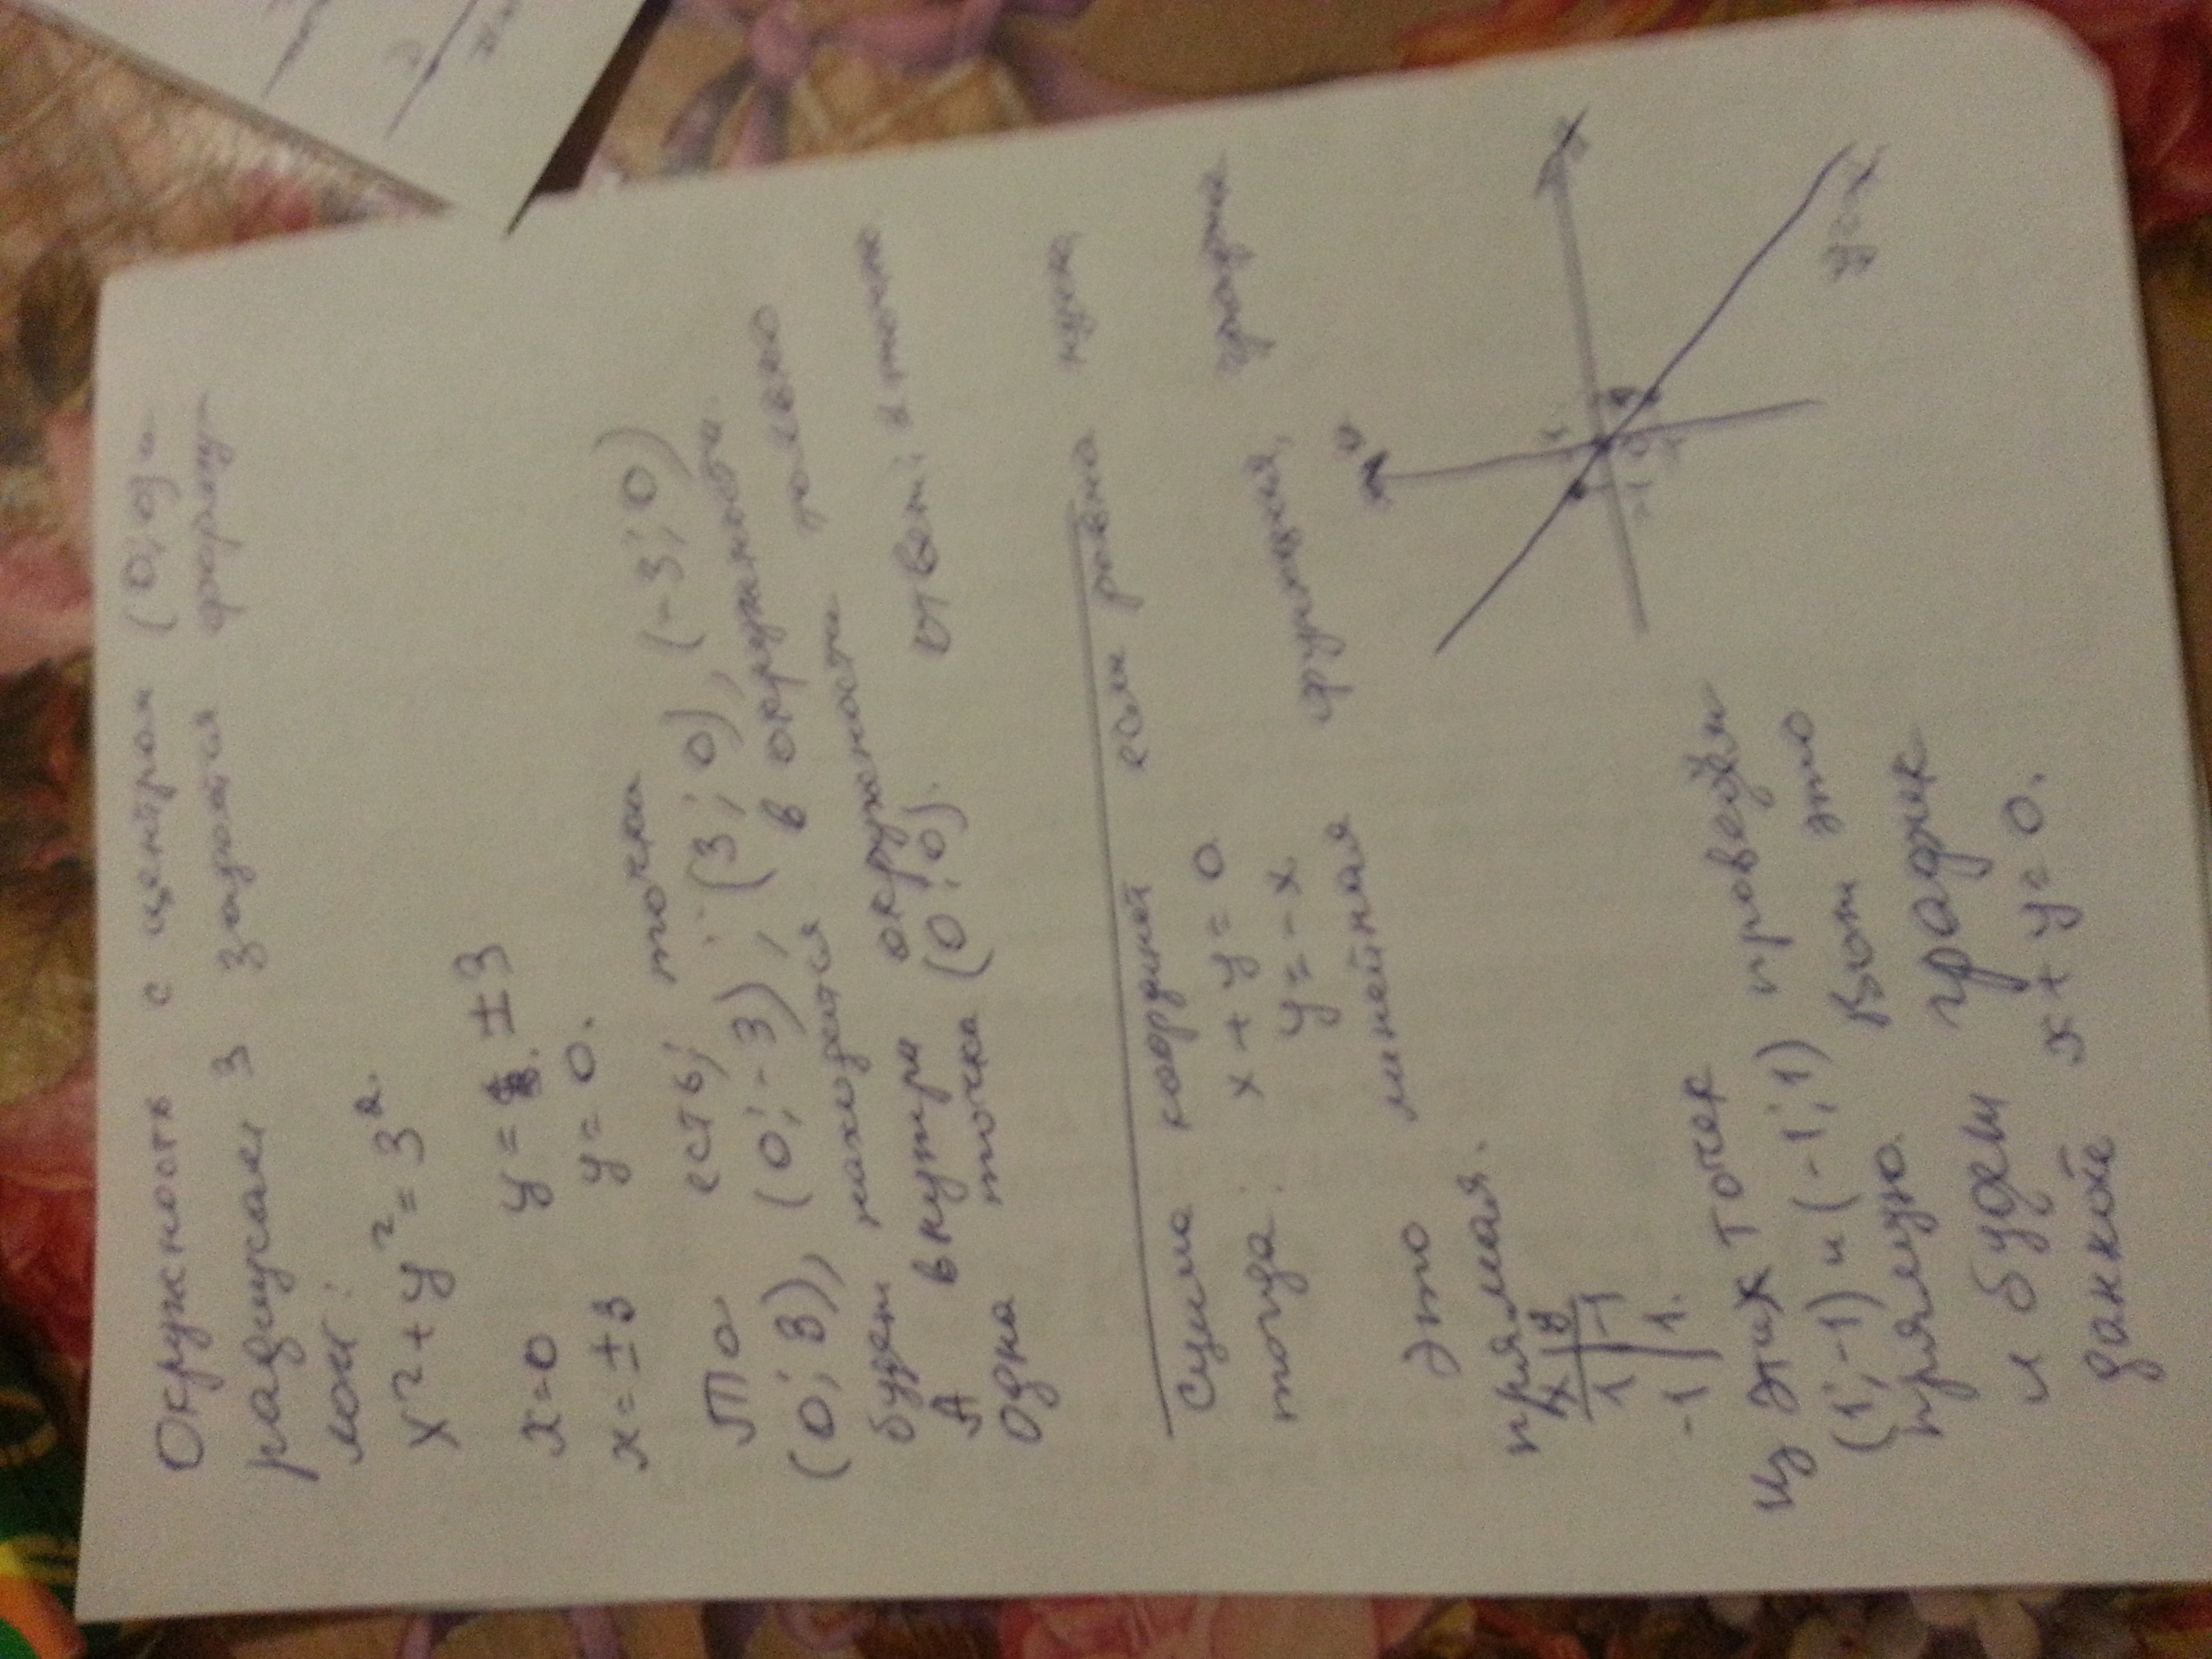 Окружность с центром (0;0) и
радиусом 3 задаётся форму-
лой:
x²+y²=3²
x=0 y= ±3
x=±3 y=0.
То есть, точки
(0;3), (0;-3), (3;0), (-3;0)
будет находится в окружности.
А внутри окружности только
Одна точка (0;0). Ответ: 1 точка
Сумма координат если равна нулю
тогда: x+y=0
y=-x
это линейная функция, график
прямая.
x y
1 -1
-1 1.
Из этих точек
(1;-1) и (-1;1) проведём
прямую. Вот это
и будет график
данной x+y=0.
y
x
1
-1
0
1
-1
y=-x